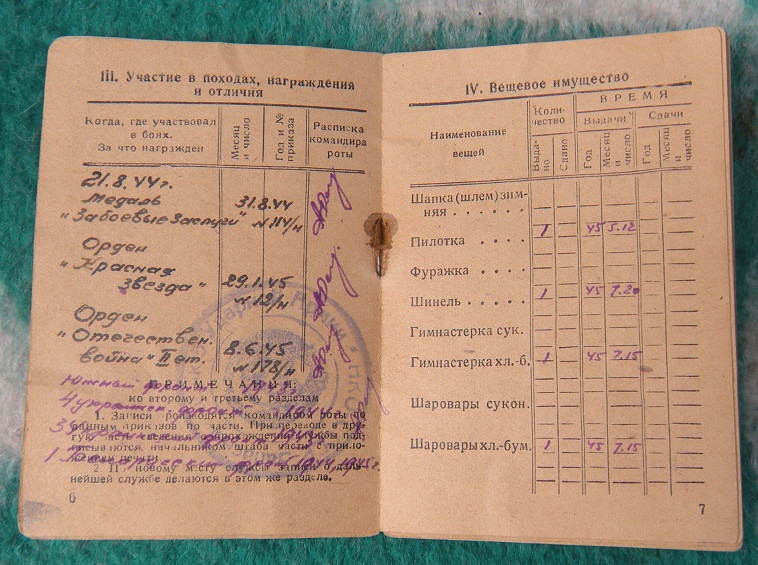 III. Участие в походах, награждения
и отличия
Когда, где участвовал
в боях.
За что награжден
Месяц
и число
Год и №
приказа
Расписка
командира
роты
21.8.44г.
Медаль 31.8.44
"За боевые заслуги" № 114/н
Орден
"Красная 29.1.45
звезда" № 12/н
Орден
"Отечествен.
война" II ст. 8.6.45
№ 178/н
ПРИМЕЧАНИЯ
ко второму и третьему разделам
1. Записи производятся командиром роты по
данным приказов по части. При переводе в дру-
службы под-
писываются начальником штаба части с прило-
жением печати.
1944, 1945 г.
2. По новому месту службы записи о даль-
нейшей службе делаются в этом же разделе.
6
IV. Вещевое имущество
Наименование
вещей
Коли-
чество
ВРЕМЯ
Выдачи
Сдачи
Выда-
но
Сдано
Год
Месяц
и
число
Год
Месяц
и
число
Шапка (шлем) зим-
няя . . . . .
Пилотка . . . . . 1 45 5.12
Фуражка . . . .
Шинель . . . . . 1 45 7.20
Гимнастерка сук.
Гимнастерка хл.-б. 1 45 7.15
Шаровары сукон.
Шаровары хл.-бум. 1 45 7.15
7